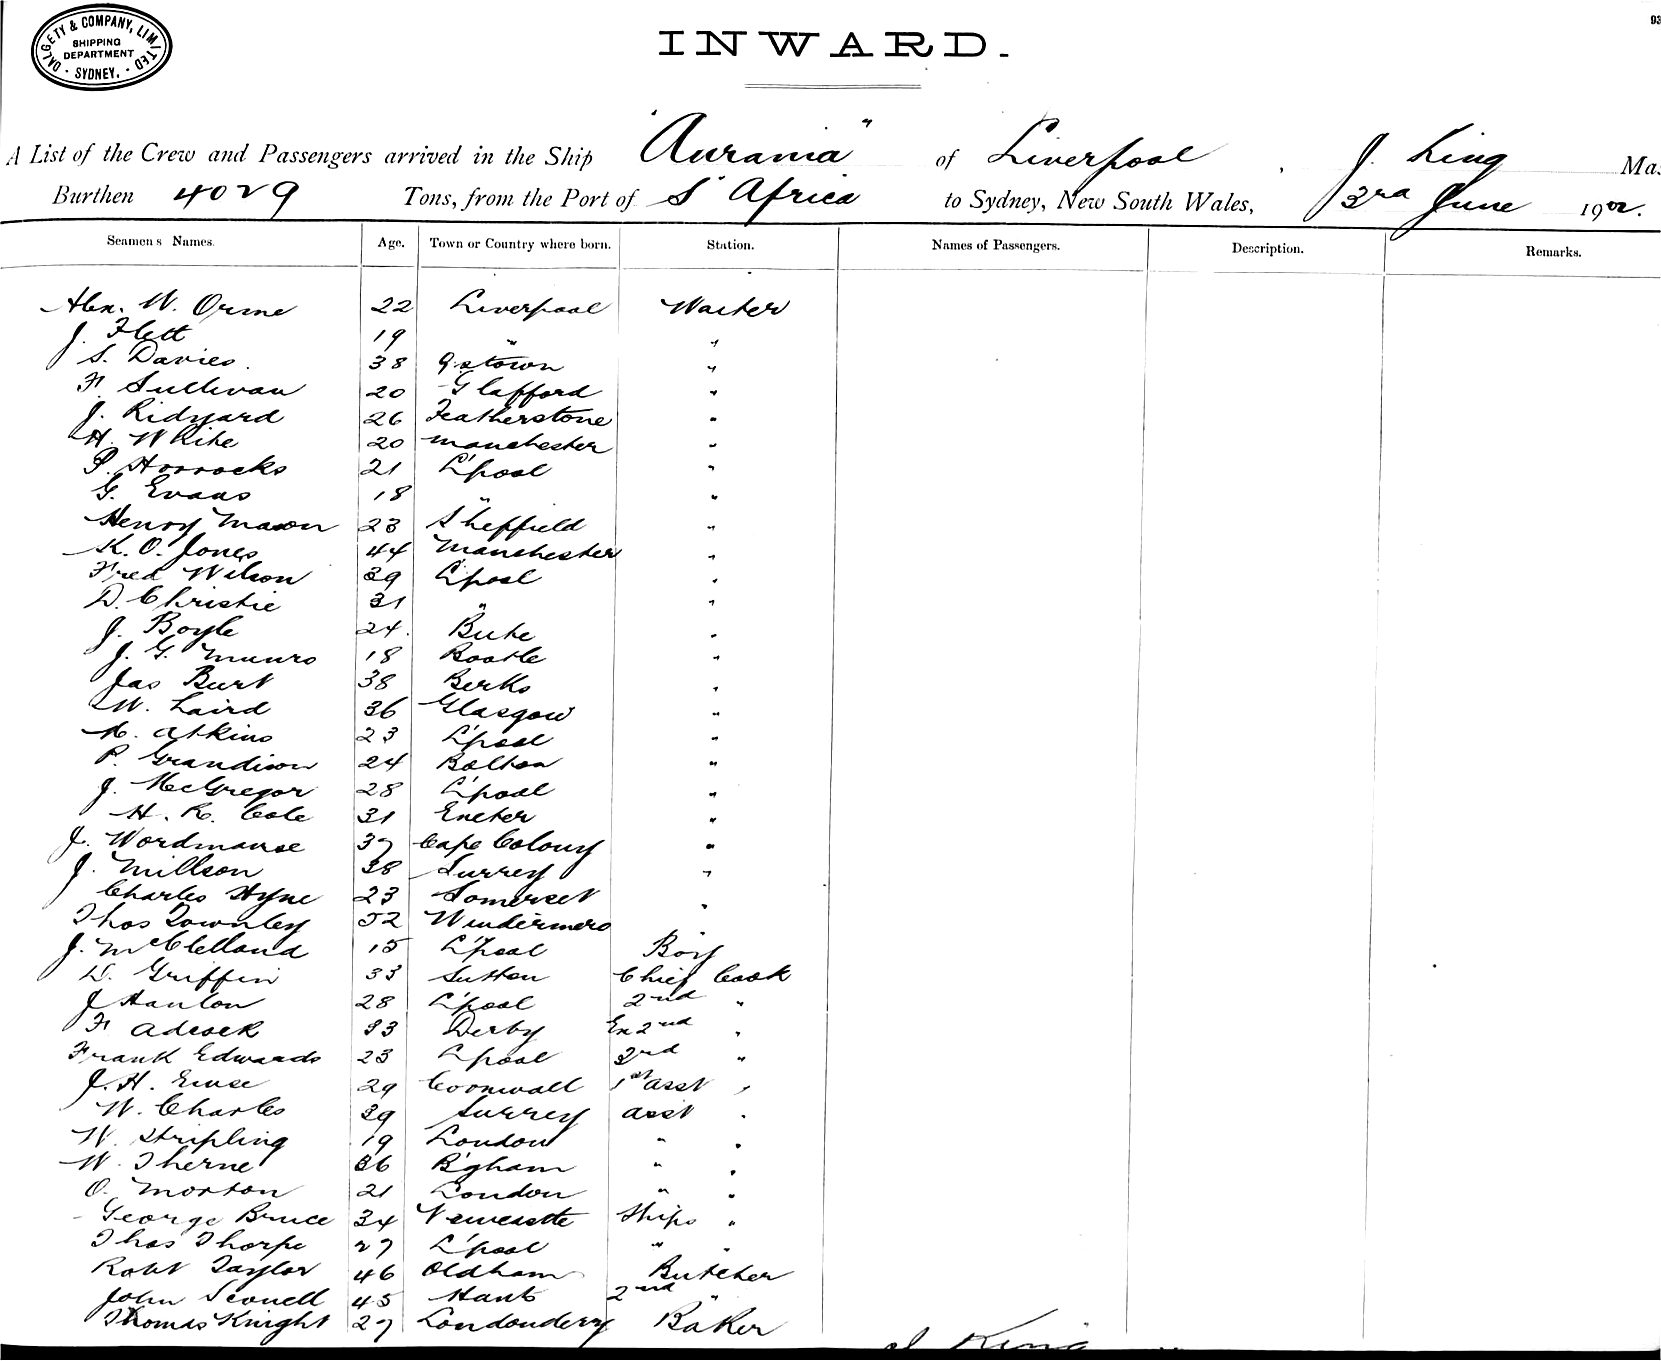 DALGETY & COMPANY, LIMITED
SHIPPING
DEPARTMENT
SYDNEY.
93
INWARD.
A List of the Crew and Passengers arrived in the Ship "Aurania" of Liverpool, J. King Mas
Burthen 4029 Tons, from the Port of S' Africa to Sydney, New South Wales, 3rd June 1902.
Seamens Names. Age. Town or Country where born. Station. Names of Passengers. Description. Remarks.
Alex. W. Orme 22 Liverpool Waiter
J. Flett 19 " "
S. Davies 38 Qstown "
F. Sullivan 20 Glafford "
J. Ridyard 26 Featherstone "
H. White 20 Manchester "
P. Horrocks 21 L'pool "
G. Evans 18 " "
Henry Mason 23 Sheffield "
K. O. Jones 44 Manchester "
Fred Wilson 39 L'pool "
D. Christie 31 " "
J. Boyle 24 Bute "
J. G. Munro 18 Bootle "
Jas Burt 38 Berks "
W. Laird 36 Glasgow "
Atkins 23 L'pool "
P. Grandison 24 Bolton "
J. McGregor 28 L'pool "
H. R. Cole 31 Exeter "
J. Wordmanse 37 Cape Colony "
J. Millson 38 Surrey "
Charles Hyne 23 Somerset "
Thos Townley 52 Windermere "
J. McClelland 15 L'pool Boy
D. Griffin 33 Sutton Chief Cook
J Hanlon 28 L'pool 2nd "
F Adcock 33 Derby Ex 2nd "
Frank Edwards 23 L'pool 3rd "
J. H. 29 Cornwall 1st asst "
W. Charles 39 Surrey asst "
W. Stripling 19 London " "
W. Therne 36 B'gham " "
O. Morton 21 London " "
George Bruce 34 Newcastle Ships "
Thos Thorpe 27 L'pool " "
Robt Taylor 46 Oldham Butcher
John Scovell 45 Hants 2nd "
Thomas Knight 27 Londonderry Baker
J King